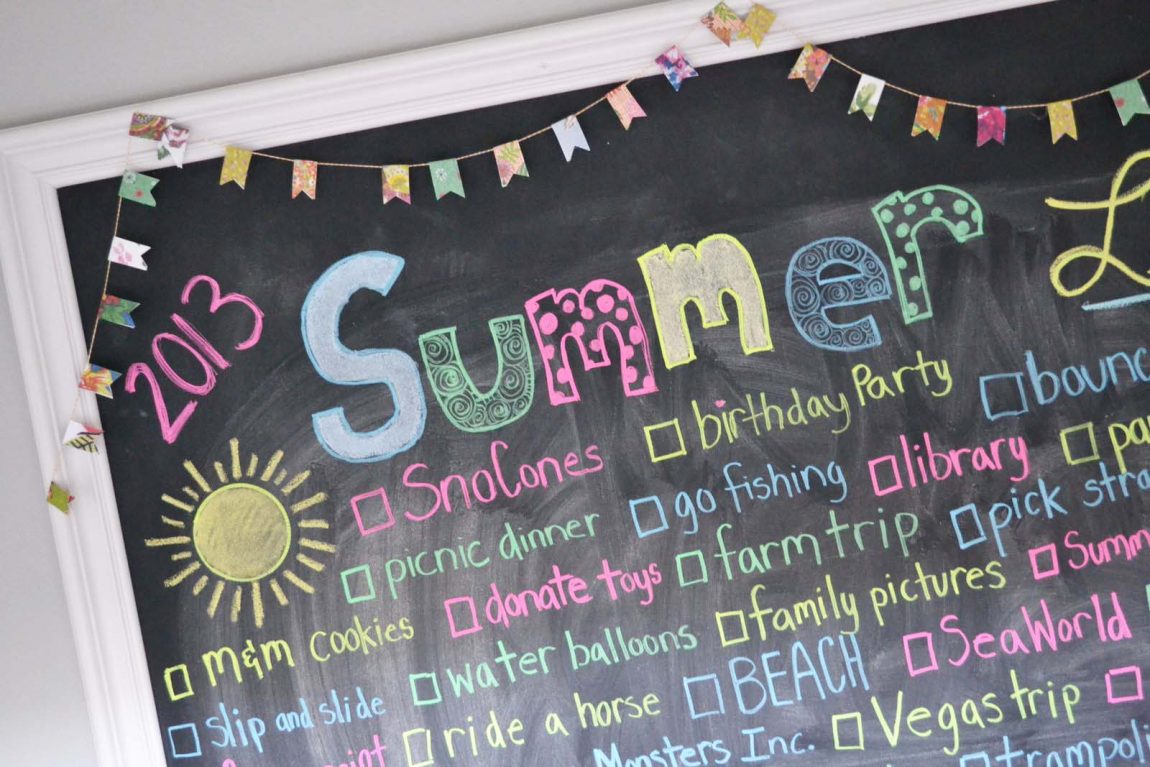 2013 Summer
SnoCones birthday Party bounc
picnic dinner go fishing library pa
m&m cookies donate toys farm trip pick stra
slip and slide water balloons family pictures Summ
ride a horse BEACH SeaWorld
Monsters Inc. Vegas trip
trampoli